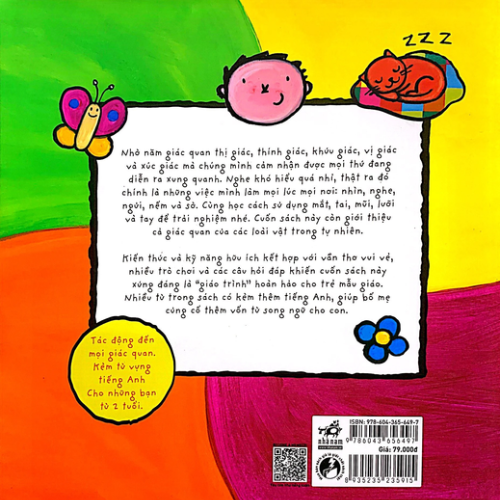 zzz
Nhờ năm giác quan thị giác, thính giác, khứu giác, vị giác
và xúc giác mà chúng mình cảm nhận được mọi thứ đang
diễn ra xung quanh. Nghe khó hiểu quá nhỉ, thật ra đó
chính là những việc mình làm mọi lúc mọi nơi: nhìn, nghe,
ngửi, nếm và sờ. Cùng học cách sử dụng mắt, tai, mũi, lưỡi
và tay để trải nghiệm nhé. Cuốn sách này còn giới thiệu
cả giác quan của các loài vật trong tự nhiên.
Kiến thức và kỹ năng hữu ích kết hợp với vần thơ vui vẻ,
nhiều trò chơi và các câu hỏi đáp khiến cuốn sách này
xứng đáng là "giáo trình" hoàn hảo cho trẻ mẫu giáo.
Nhiều từ trong sách có kèm thêm tiếng Anh, giúp bố mẹ
củng cố thêm vốn từ song ngữ cho con.
Tác động đến
mọi giác quan.
Kèm từ vựng
tiếng Anh
Cho những bạn
từ 2 tuổi.
ISBN: 978-604-365-649-7
nhã nam
9 786043 656497
Giá: 79.000đ
8 935235 235915